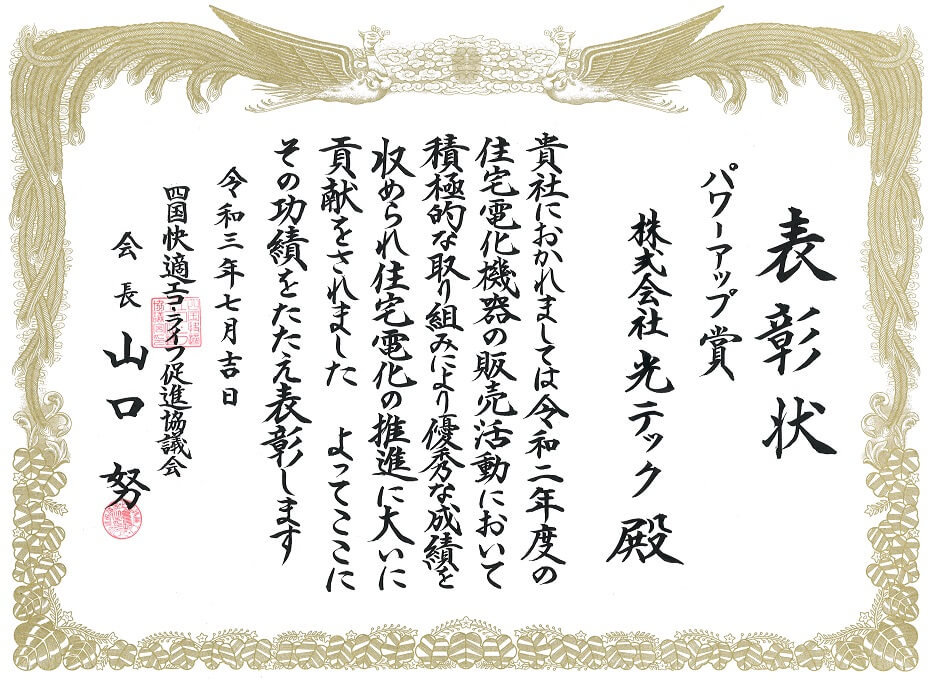 表彰状
パワーアップ賞
株式会社光テック 殿
貴社におかれましては令和二年度の
住宅電化機器の販売活動において
積極的な取り組みにより優秀な成績を
収められ住宅電化の推進に大いに
貢献をされました よってここに
その功績をたたえ表彰します
令和三年七月吉日
四国快適エコ・ライフ促進協議会
会長 山口 努